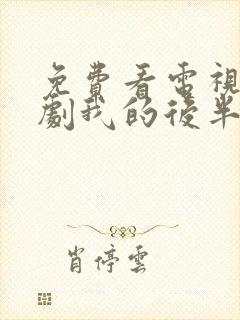 免費看電視
劇我的後半
肖停雲